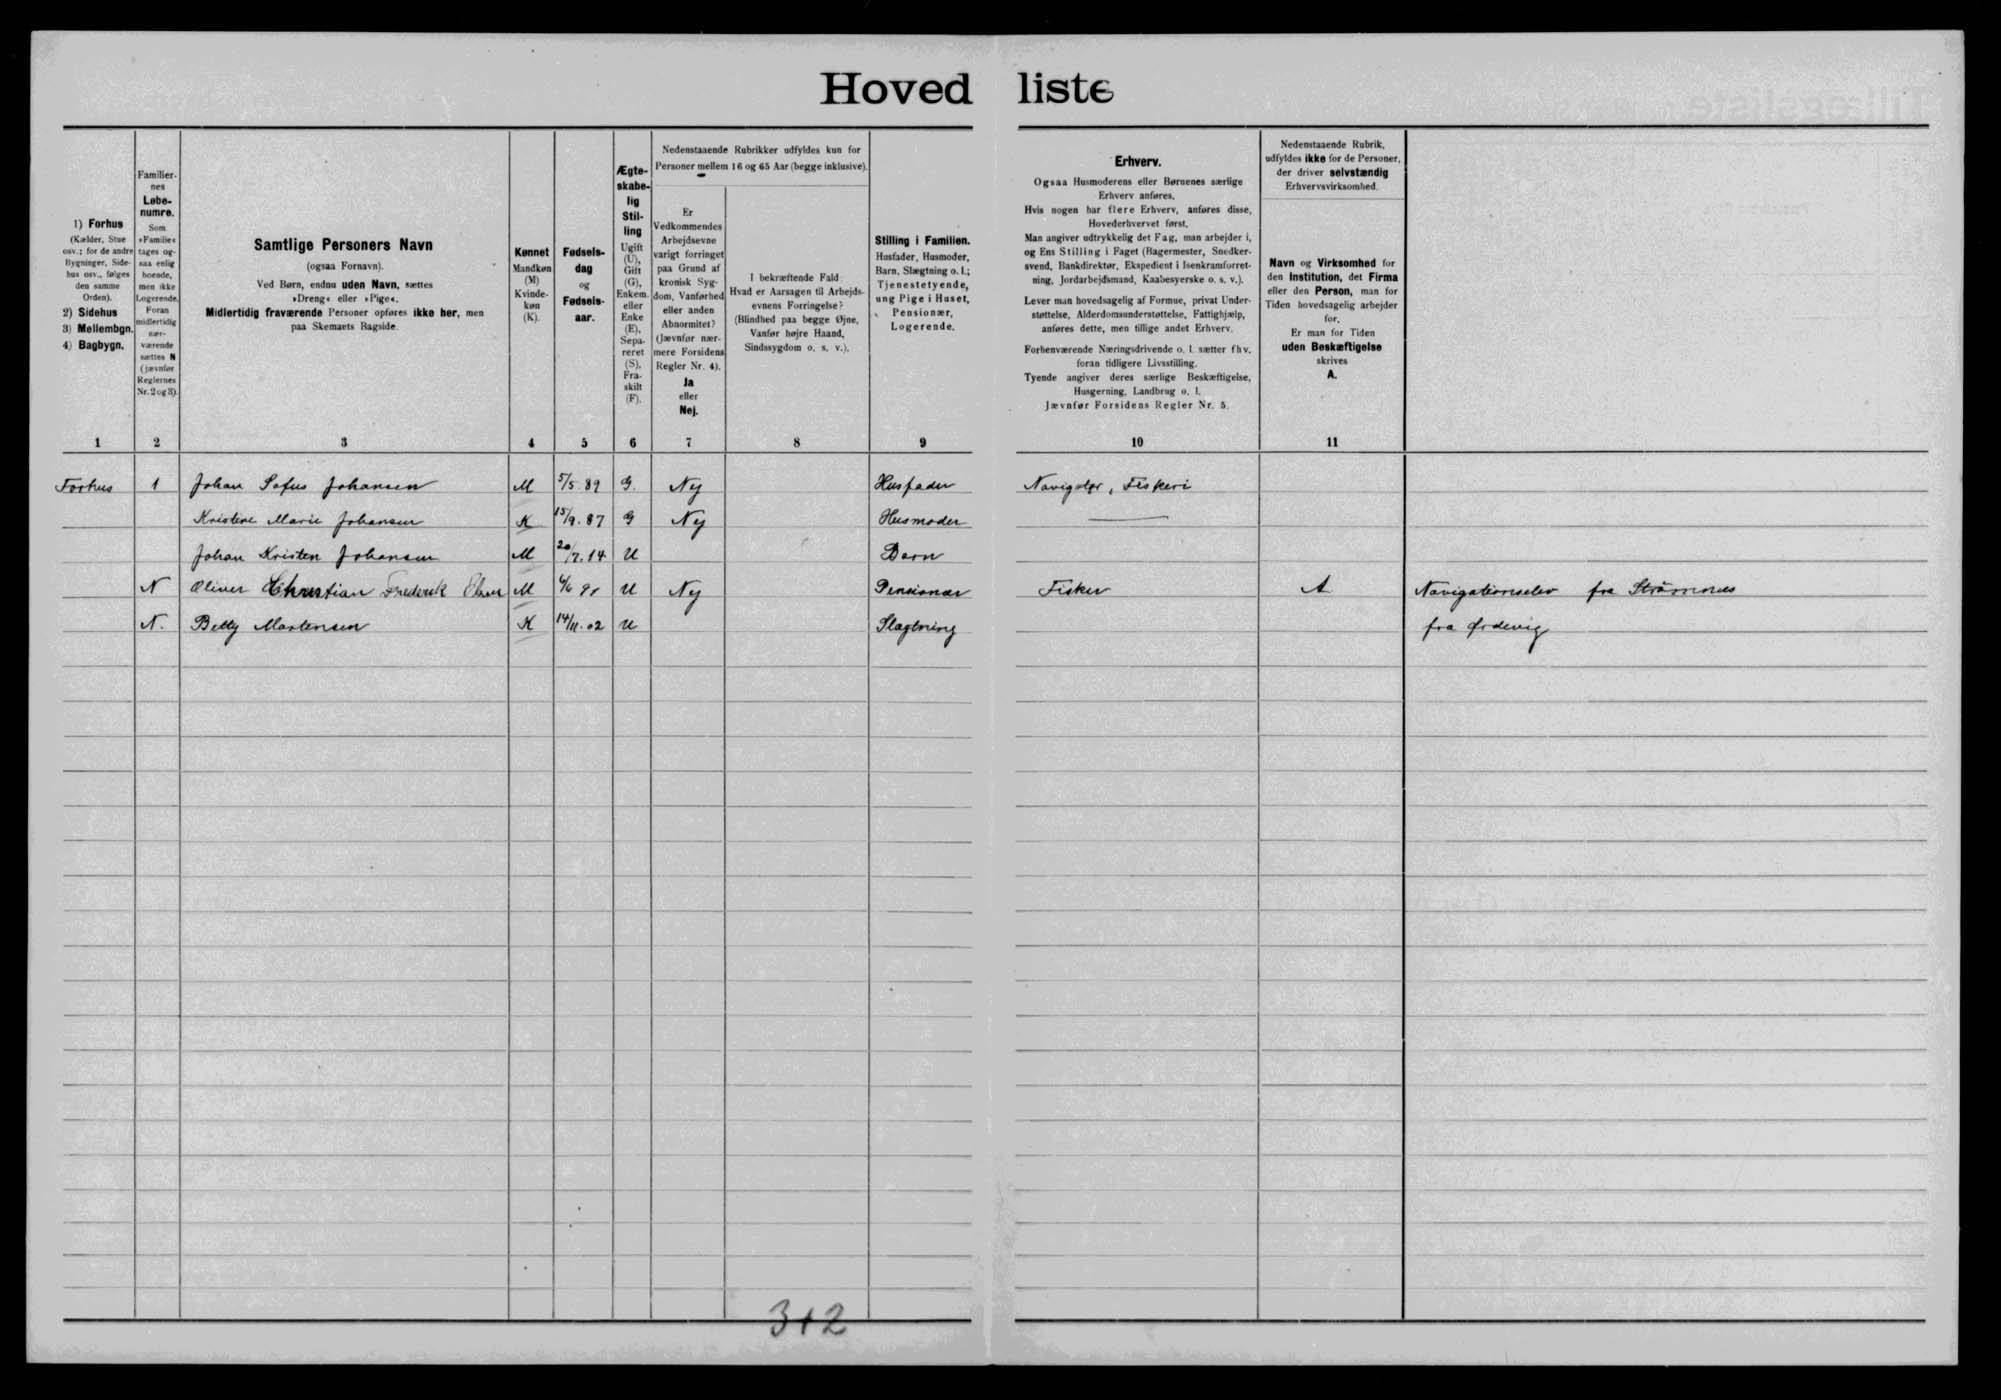 Hovedliste
1) Forhus
(Kælder, Stue
osv.; for de andre
Bygninger, Side-
hus osv., følges
den samme
Orden).
2) Sidehus
3) Mellembgn.
4) Bagbygn.
Familier-
nes
Løbe-
numre.
Som
»Familie«
tages og-
saa enlig
boende,
men ikke
Logerende.
Foran
midlertidig
nær-
værende
sættes N
(jævnfør
Reglernes
Nr. 2 og 3).
Samtlige Personers Navn
(ogsaa Fornavn).
Ved Børn, endnu uden Navn, sættes
»Dreng« eller »Pige«.
Midlertidig fraværende Personer opføres ikke her, men
paa Skemaets Bagside.
Kønnet
Mandkøn
(M)
Kvinde-
køn
(K).
Fødsels-
dag
og
Fødsels-
aar.
Ægte-
skabe-
lig
Stil-
ling
Ugift
(U),
Gift
(G),
Enkem.
eller
Enke
(E),
Sepa-
reret
(S),
Fra-
skilt
(F).
Nedenstaaende Rubrikker udfyldes kun for
Personer mellem 16 og 65 Aar (begge inklusive).
Er
Vedkommendes
Arbejdsevne
varigt forringet
paa Grund af
kronisk Syg-
dom, Vanførhed
eller anden
Abnormitet?
(Jævnfør nær-
mere Forsidens
Regler Nr. 4).
Ja
eller
Nej.
I bekræftende Fald:
Hvad er Aarsagen til Arbejds-
evnens Forringelse?
(Blindhed paa begge Øjne,
Vanfør højre Haand,
Sindssygdom o. s. v.).
Stilling i Familien.
Husfader, Husmoder,
Barn, Slægtning o. l.;
Tjenestetyende,
ung Pige i Huset,
Pensionær,
Logerende.
Erhverv.
Ogsaa Husmoderens eller Børnenes særlige
Erhverv anføres.
Hvis nogen har flere Erhverv, anføres disse,
Hovederhvervet først.
Man angiver udtrykkelig det Fag, man arbejder i,
og Ens Stilling i Faget (Bagermester, Snedker-
svend, Bankdirektør, Ekspedient i Isenkramforret-
ning, Jordarbejdsmand, Kaabesyerske o. s. v.).
Lever man hovedsagelig af Formue, privat Under-
støttelse, Alderdomsunderstøttelse, Fattighjælp,
anføres dette, men tillige andet Erhverv.
Forhenværende Næringsdrivende o. l. sætter fhv.
foran tidligere Livsstilling.
Tyende angiver deres særlige Beskæftigelse,
Husgerning, Landbrug o. l.
Jævnfør Forsidens Regler Nr. 5.
Nedenstaaende Rubrik,
udfyldes ikke for de Personer,
der driver selvstændig
Erhvervsvirksomhed.
Navn og Virksomhed for
den Institution, det Firma
eller den Person, man for
Tiden hovedsagelig arbejder
for.
Er man for Tiden
uden Beskæftigelse
skrives
A.
1 2 3 4 5 6 7 8 9 10 11
Forhus 1 Johan Sofus Johansen M 5/5.89 G. Nej Husfader Navigatør, Fiskeri
Kristine Marie Johansen K 15/9.87 G Nej Husmoder
Johan Kristen Johansen M 20/7.14 U Barn
N Oliver Christian Frederik M U Nej Pensionær Fisker A Navigationselev fra Strømnæs
N. Betty Mortensen K 14/11.02 U Slægtning fra Ørdevig
3+2